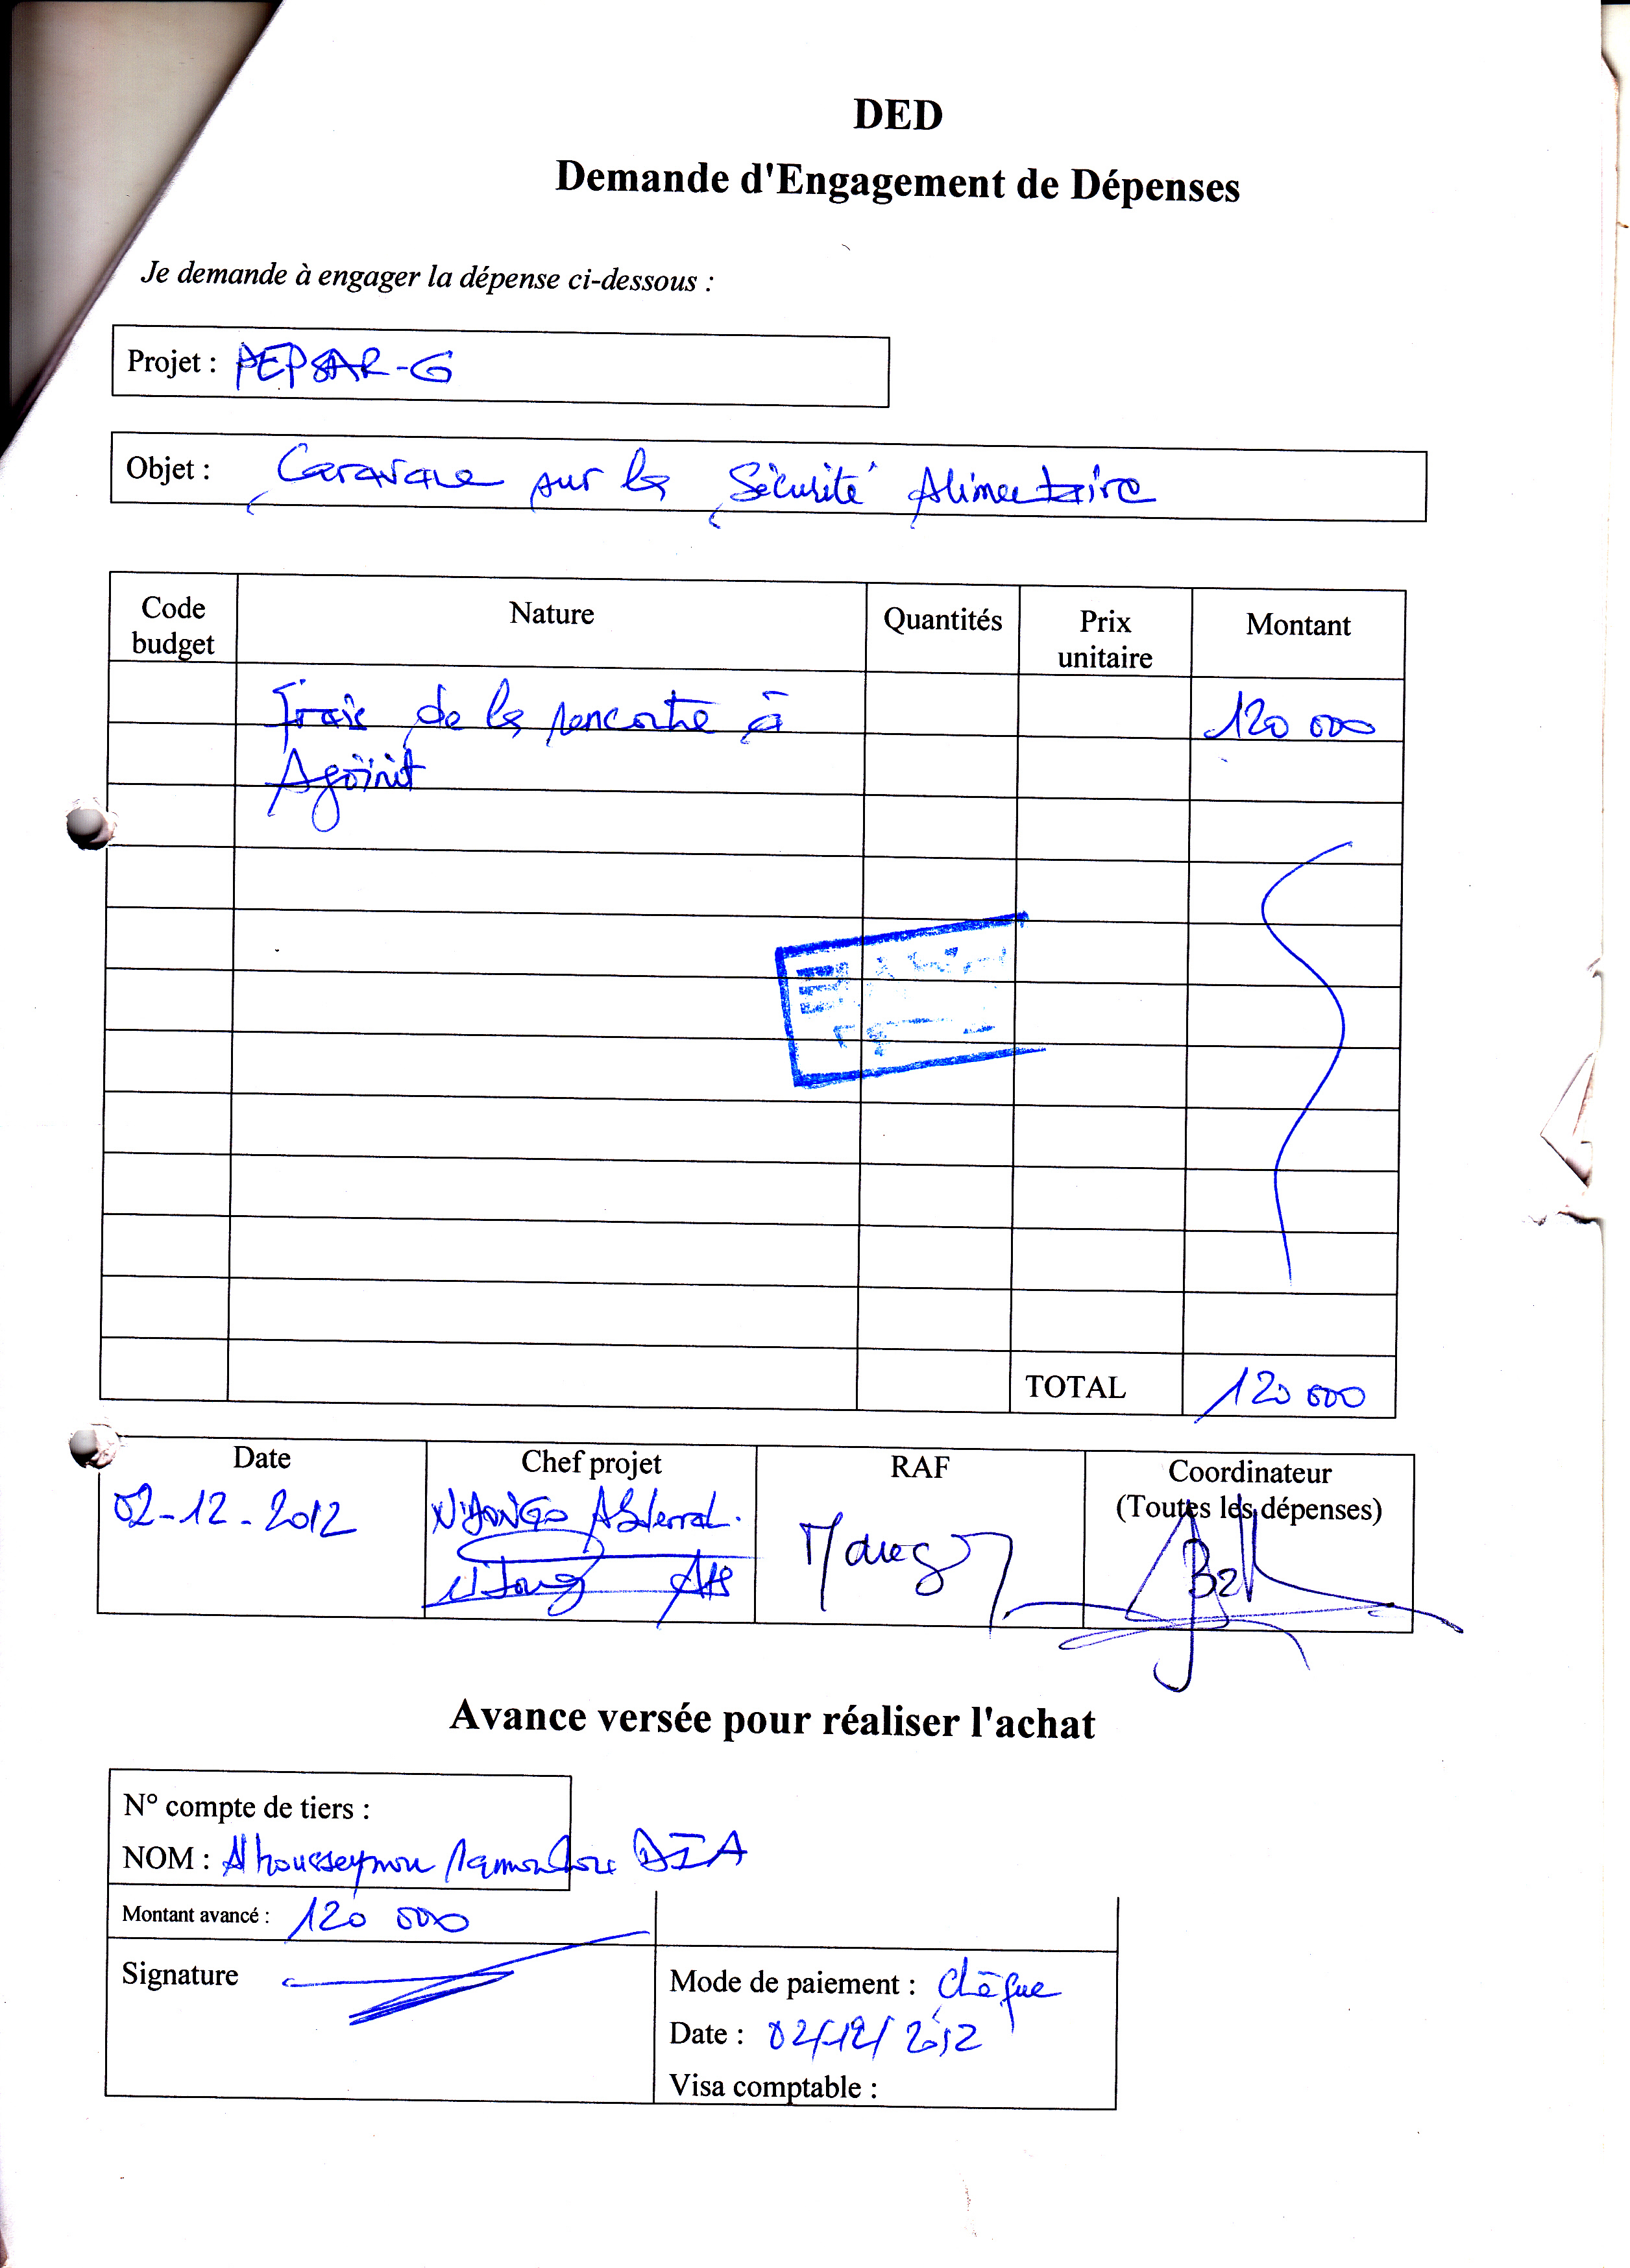 DED
Demande d'Engagement de Dépenses
Je demande à engager la dépense ci-dessous :
Projet : PEPSAR-G
Objet : Caravane sur la Sécurité Alimentaire
Code budget Nature Quantités Prix unitaire Montant
Frais de la rencontre à 120 000
Agoïnit
TOTAL 120 000
Date Chef projet RAF Coordinateur
(Toutes les dépenses)
02-12-2012
Avance versée pour réaliser l'achat
N° compte de tiers :
NOM : Alhousseynou DIA
Montant avancé : 120 000
Signature
Mode de paiement : Chèque
Date : 02/12/2012
Visa comptable :